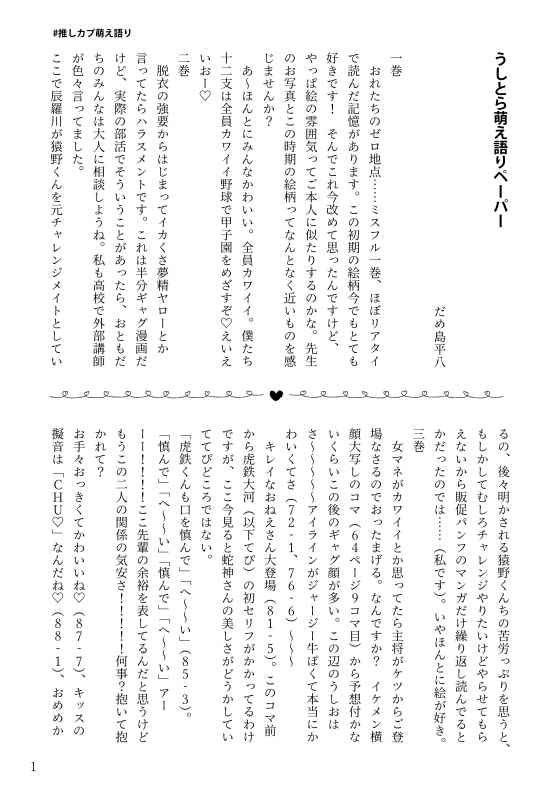 #推しカプ萌え語り
うしとら萌え語りペーパー
だめ島平八
一巻
おれたちのゼロ地点……ミスフル一巻、ほぼリアタイ
で読んだ記憶があります。この初期の絵柄今でもとても
好きです！　そんでこれ今改めて思ったんですけど、
やっぱ絵の雰囲気ってご本人に似たりするのかな。先生
のお写真とこの時期の絵柄ってなんとなく近いものを感
じませんか？
あ～ほんとにみんなかわいい。全員カワイイ。僕たち
十二支は全員カワイイ野球で甲子園をめざすぞ♡えいえ
いおー♡
二巻
脱衣の強要からはじまってイカくさ夢精ヤローとか
言ってたらハラスメントです。これは半分ギャグ漫画だ
けど、実際の部活でそういうことがあったら、おともだ
ちのみんなは大人に相談しようね。私も高校で外部講師
が色々言ってました。
ここで辰羅川が猿野くんを元チャレンジメイトとしてい
るの、後々明かされる猿野くんちの苦労っぷりを思うと、
もしかしてむしろチャレンジやりたいけどやらせてもら
えないから販促パンフのマンガだけ繰り返し読んでると
かだったのでは……（私です）。いやほんとに絵が好き。
三巻
女マネがカワイイとか思ってたら主将がケツからご登
場なさるのでおったまげる。なんですか？　イケメン横
顔大写しのコマ（64ページ9コマ目）から予想付かな
いくらいこの後のギャグ顔が多い。この辺のうしおは
さ～～～～～アイラインがジャージー牛ぽくて本当にか
わいくてさ（72-1、76-6）～～～
キレイなおねえさん大登場（81-5）。このコマ前
から虎鉄大河（以下てび）の初セリフがかかってるわけ
ですが、ここ今見ると蛇神さんの美しさがどうかしてい
ててびどころではない。
「虎鉄くんも口を慎んで」「へ～～い」（85-3）。
「慎んで」「へ～～い」「慎んで」「へ～～い」アー
ーー！！！！ここ先輩の余裕を表してるんだと思うけど
もうこの二人の関係の気安さ！！！！！何事？抱いて抱
かれて？
お手々おっきくてかわいいね♡（87-7）、キッスの
擬音は「CHU♡」なんだね♡（88-1）、おめめか
1